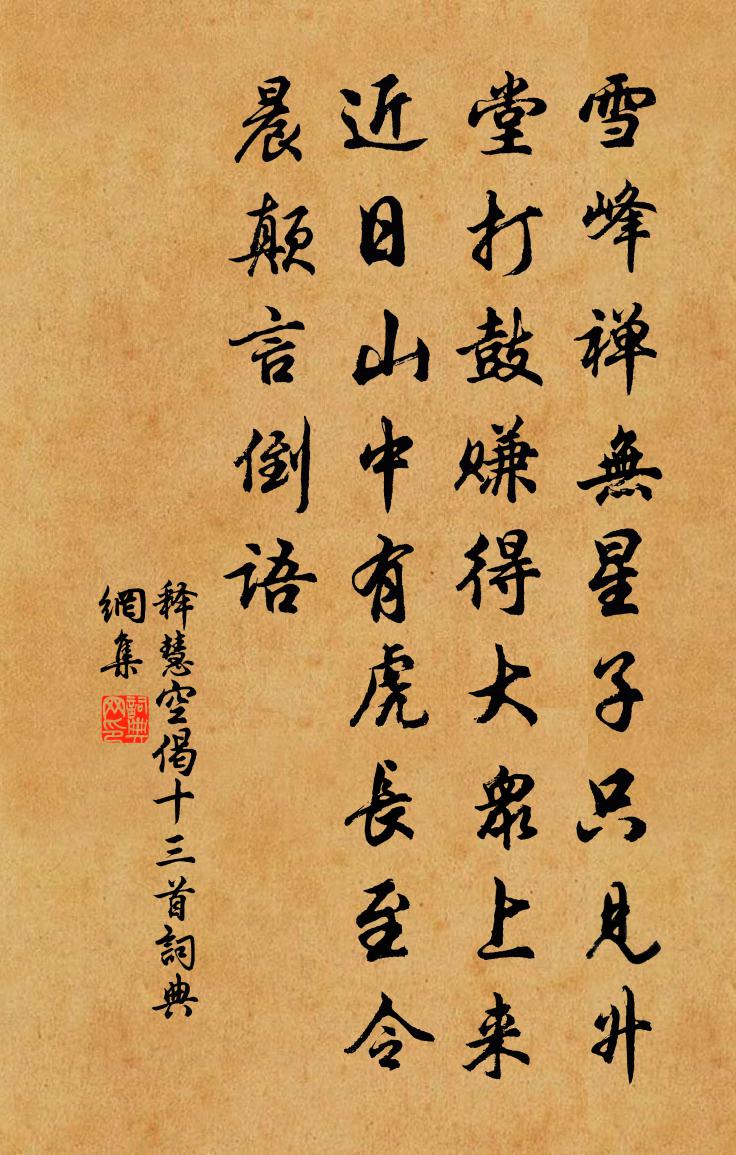 雪峰禅無星子只見升
堂打鼓赚得大衆上来
近日山中有虎長至今
晨颠言倒语
释慧空偈十三首詞典
網集
詞典
网印